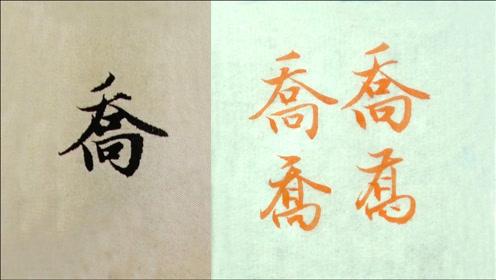 喬
喬 喬
喬 喬